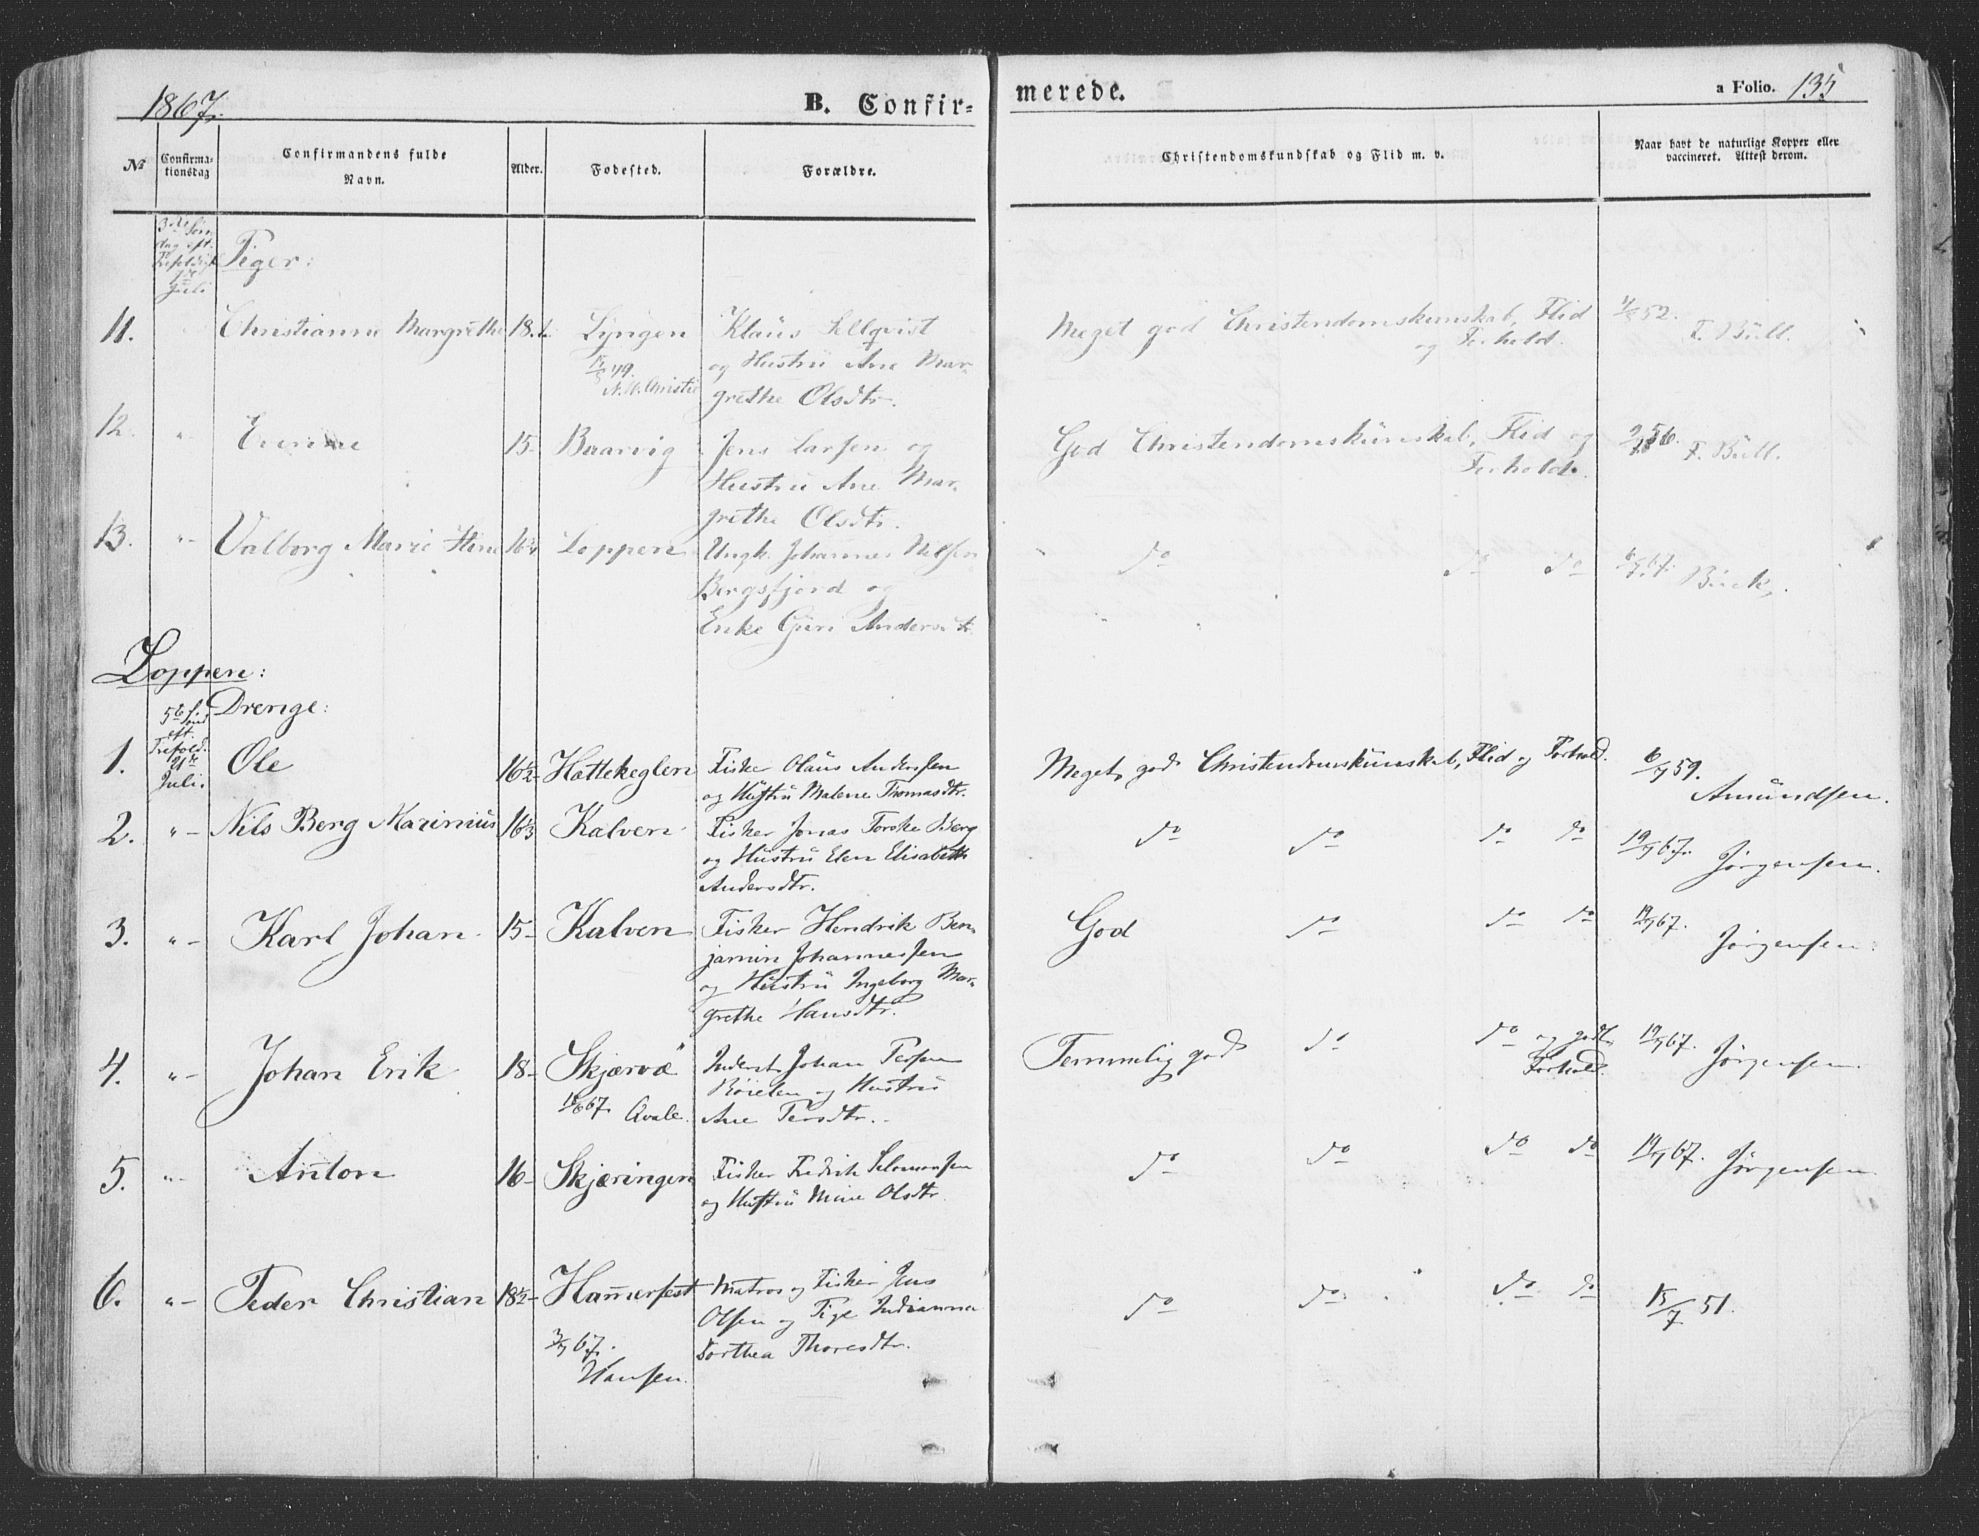 1867.
B. Confirmerede.
a Folio. 135
No
Confirmationsdag
Confirmandens fulde Navn.
Alder.
Fodested.
Forældre.
Christendomskundskab og Flid m. v.
Naar havt de naturlige Kopper eller vaccineret. Attest derom.
3die Søndag eft. Trefoldigh. Juli
Piger:
11. Christianne Margrethe 18 Lyngen Klaus Sellqvist
N. N. Christie
og Hustru Ane Margrethe Olsdtr.
Meget god Christendomskunskab, Flid og Forhold. 52. F. Büll.
12. " 15 Baarvig Jens Larsen og
Hustru Ane Margrethe Olsdtr.
God Christendomskunskab, Flid og Forhold. 56. F. Büll.
13. " Valborg Marie 16 Loppen Ungk. Johannes Nilsen
Bergsfjord og
Enke Guri Andersdtr.
do do do 67.
Loppen:
5te Sønd. eft. Trefold. 21de Juli.
Drenge:
1. Ole 16½ Hattekeglen Fisker Olaus Andersen
og Hustru Malene Thomasdtr.
Meget god Christendomskunskab, Flid og Forhold. 6/7 59. Amundsen.
2. " Nils Berg Marinius 16⅓ Kalven Fisker Jonas Torske Berg
og Hustru Elen Elisabeth
Andersdtr.
do do do do 19/7 67. Jørgensen.
3. " Karl Johan 15 Kalven Fisker Hendrik Benjamin Johannessen
og Hustru Ingeborg Margrethe Hansdtr.
God do do do 19/7 67. Jørgensen.
4. " Johan Erik 18 Skjærvø Inderst Johan Persen
67. Qvale.
og Hustru
Ane Persdtr.
Temmelig god do do og godt Forhold. 19/7 67. Jørgensen.
5. " Anton 16 Skjæringen Fisker Fredrik Salomonsen
og Hustru Olsdtr.
do do do do 19/7 67. Jørgensen.
6. " Peder Christian 18½ Hammerfest Matros og Fisker Jens
Olsen og Pige Indianna
Dorthea Thoresdtr.
3/7 67. Hansen.
do do do do 15/7 51.